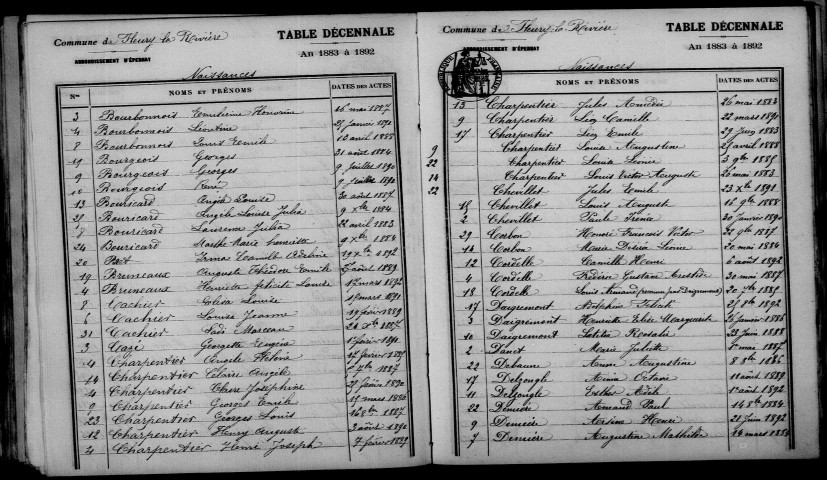 Commune de Fleury la Rivière
ARRONDISSEMENT D'ÉPERNAY
TABLE DÉCENNALE
An 1883 à 1892
Naissances
Nos NOMS ET PRÉNOMS DATES DES ACTES
3 Bourbonnois Honorine 16 mai 1887
4 Bourbonnois Léontine 25 janvier 1891
8 Bourbonnois Louis Emile 13 avril 1888
19 Bourgeois Georges 31 août 1884
9 Bourgeois Georges 9 juillet 1890
10 Bourgeois René 9 juillet 1890
13 Bouricard Louise 30 août 1887
21 Bouricard Angèle Louise Julia 9 Xbre 1884
7 Bouricard Laurence Julia 22 avril 1883
24 Bouricard Marthe Marie Louisa 9 Xbre 1884
20 Irma Camille Adeline 19 Xbre 1892
19 Bruneaux Auguste Théodore Emile août 1889
4 Bruneaux Henriette Félicité Louise 17 mars 1892
8 Cachier Louise 19 mars 1891
6 Cachier Louise Jeanne 19 février 1889
31 Cachier Sadi Marceau 24 Xbre 1887
3 Cagé Georgette Eugénie 1 février 1891
4 Charpentier Angèle Hélène 17 février 1885
14 Charpentier Claire Angèle 7bre 1887
4 Charpentier Claire Joséphine 21 février 1890
9 Charpentier Georges Emile 15 mars 1886
23 Charpentier Georges Louis 16 8bre 1887
12 Charpentier Henry August 3 août 1890
4 Charpentier Henri Joseph 7 février 1889
Commune de Fleury la Rivière
ARRONDISSEMENT D'ÉPERNAY
TABLE DÉCENNALE
An 1883 à 1892
Naissances
NOMS ET PRÉNOMS DATES DES ACTES
13 Charpentier Jules Amédée 26 mai 1883
9 Charpentier Léon Camille 22 mars 1891
17 Charpentier Léon Emile 29 juin 1883
9 Charpentier Louisa Augustine 29 avril 1888
22 Charpentier Louisa Léonie 3 9bre 1885
14 Charpentier Louis Victor Auguste 20 mai 1883
22 Chevillet Jules Emile 23 Xbre 1891
18 Chevillet Louis Auguste 16 9bre 1888
2 Chevillet Paul Irénée 30 janvier 1890
29 Corbon Henri François Victor 22 9bre 1887
14 Corbon Maria Désirée Léonie 20 mai 1884
12 Cordelle Camille Henri 6 août 1892
4 Cordelle Gustave 30 mai 1887
18 Cordelle Louis Armand 20 7bre 1885
17 Daigremont Delphine 25 9bre 1892
3 Daigremont Henriette Marguerite 26 janvier 1886
10 Daigremont Letitia Rosalie 23 juin 1888
2 Marie Juliette mai 1887
22 Debaune Augustine 8 8bre 1886
17 Delgongle Octave 11 août 1889
11 Delgongle Esther Adèle 1 août 1892
22 Demière Armand Paul 14 8bre 1884
9 Demière Henri 21 juin 1892
7 Demière Augustine Mathilde 14 mars 1884